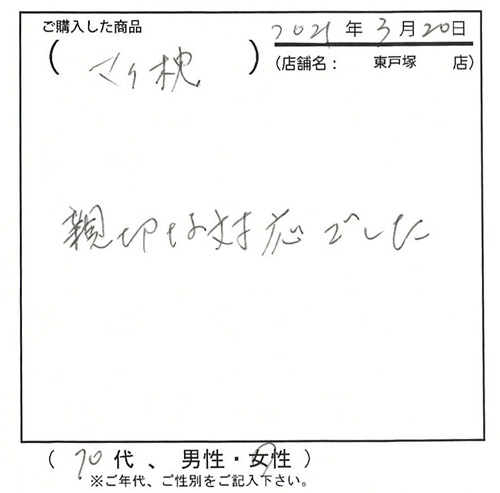 ご購入した商品
2021年3月20日
(マイ枕)
(店舗名： 東戸塚 店)
親切な対応でした
(70代、男性・女性)
※ご年代、ご性別をご記入下さい。